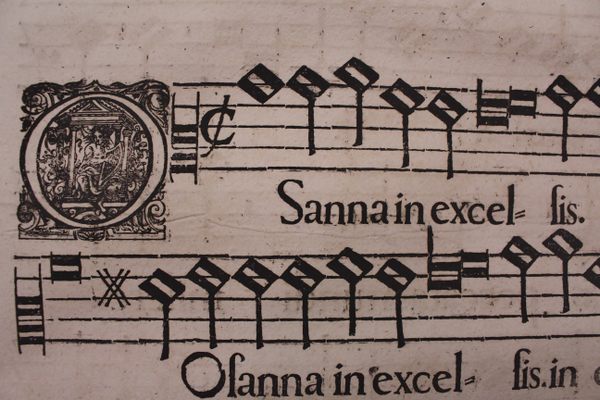 O Sanna in excel= ſis.
Oſanna in excel= ſis. in